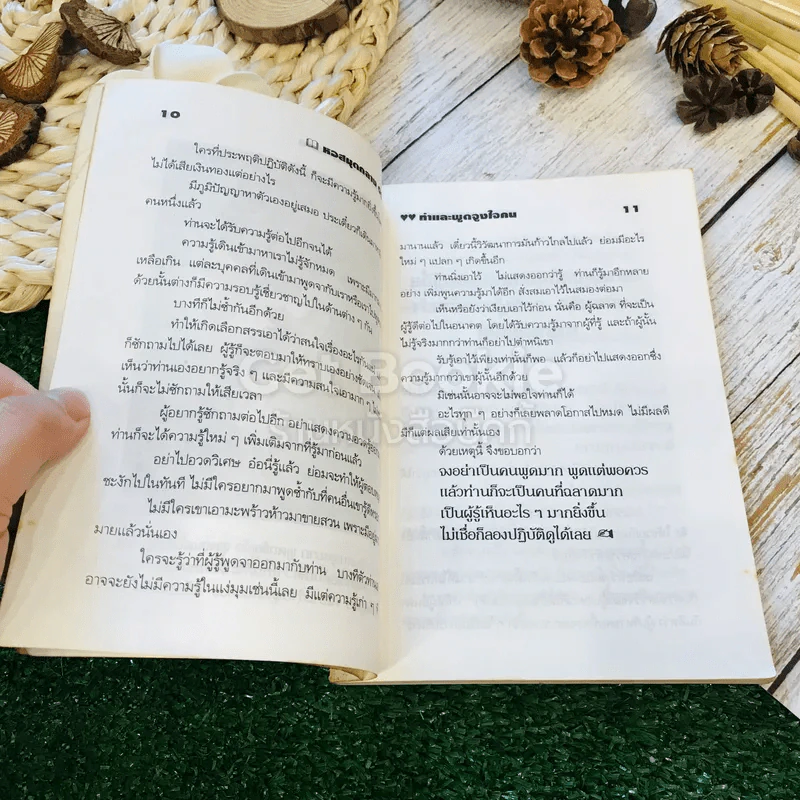 10
หอสมุดกลาง
ใครที่ประพฤติปฏิบัติดังนี้ ก็จะมีความรู้มาก
ไม่ได้เสียเงินทองแต่อย่างไร
มีภูมิปัญญาหาตัวเองอยู่เสมอ ประเดี๋ยวก็เดิน
คนหนึ่งแล้ว
ท่านจะได้รับความรู้ต่อไปอีกจนได้
ความรู้เดินเข้ามาหาเราไม่รู้จักหมด เพราะมี
เหลือเกิน แต่ละบุคคลที่เดินเข้ามาพูดจากับเราหรือเรา
ด้วยนั้นต่างก็มีความรอบรู้เชี่ยวชาญไปในด้านต่าง ๆ กัน
บางทีก็ไม่ซ้ำกันอีกด้วย
ทำให้เกิดเลือกสรรเอาได้ว่าสนใจเรื่องอะไร
ก็ซักถามไปได้เลย ผู้รู้ก็จะตอบมาให้ทราบเองอย่าง
เห็นว่าท่านเองอยากรู้จริง ๆ และมีความสนใจเอามาก ๆ
นั้นก็จะไม่ซักถามให้เสียเวลา
ผู้อยากรู้ซักถามต่อไปอีก อย่าแสดงความอวดรู้
ท่านก็จะได้ความรู้ใหม่ ๆ เพิ่มเติมจากที่รู้มาก่อนแล้ว
อย่าไปอวดวิเศษ อ๋อนี่รู้แล้ว ย่อมจะทำให้ผู้
ชะงักไปในทันที ไม่มีใครอยากมาพูดซ้ำกับที่คนอื่นเขารู้
ไม่มีใครเขาเอามะพร้าวห้าวมาขายสวน เพราะมีอยู่
มายแล้วนั่นเอง
ใครจะรู้ว่าที่ผู้รู้พูดจาออกมากับท่าน บางทีตัวท่าน
อาจจะยังไม่มีความรู้ในแง่มุมเช่นนี้เลย มีแต่ความรู้เก่า ๆ
♥♥ ทำและพูดจูงใจคน 11
มานานแล้ว เดี๋ยวนี้วิวัฒนาการมันก้าวไกลไปแล้ว ย่อมมีอะไร
ใหม่ ๆ แปลก ๆ เกิดขึ้นอีก
ท่านนิ่งเอาไว้ ไม่แสดงออกว่ารู้ ท่านก็รู้มาอีกหลาย
อย่าง เพิ่มพูนความรู้มาได้อีก สั่งสมเอาไว้ในสมองต่อมา
เห็นหรือยังว่าเงียบเอาไว้ก่อน นั่นคือ ผู้ฉลาด ที่จะเป็น
ผู้รู้ดีต่อไปในอนาคต โดยได้รับความรู้มาจากผู้ที่รู้ และถ้าผู้นั้น
ไม่รู้จริงมากกว่าท่านก็อย่าไปตำหนิเขา
รับรู้เอาไว้เพียงเท่านั้นก็พอ แล้วก็อย่าไปแสดงออกซึ่ง
ความรู้มากกว่าเขาผู้นั้นอีกด้วย
มิเช่นนั้นอาจจะไม่พอใจท่านก็ได้
อะไรทุก ๆ อย่างก็เลยพลาดโอกาสไปหมด ไม่มีผลดี
มีก็แต่ผลเสียเท่านั้นเอง
ด้วยเหตุนี้ จึงขอบอกว่า
จงอย่าเป็นคนพูดมาก พูดแต่พอควร
แล้วท่านก็จะเป็นคนที่ฉลาดมาก
เป็นผู้รู้เห็นอะไร ๆ มากยิ่งขึ้น
ไม่เชื่อก็ลองปฏิบัติดูได้เลย